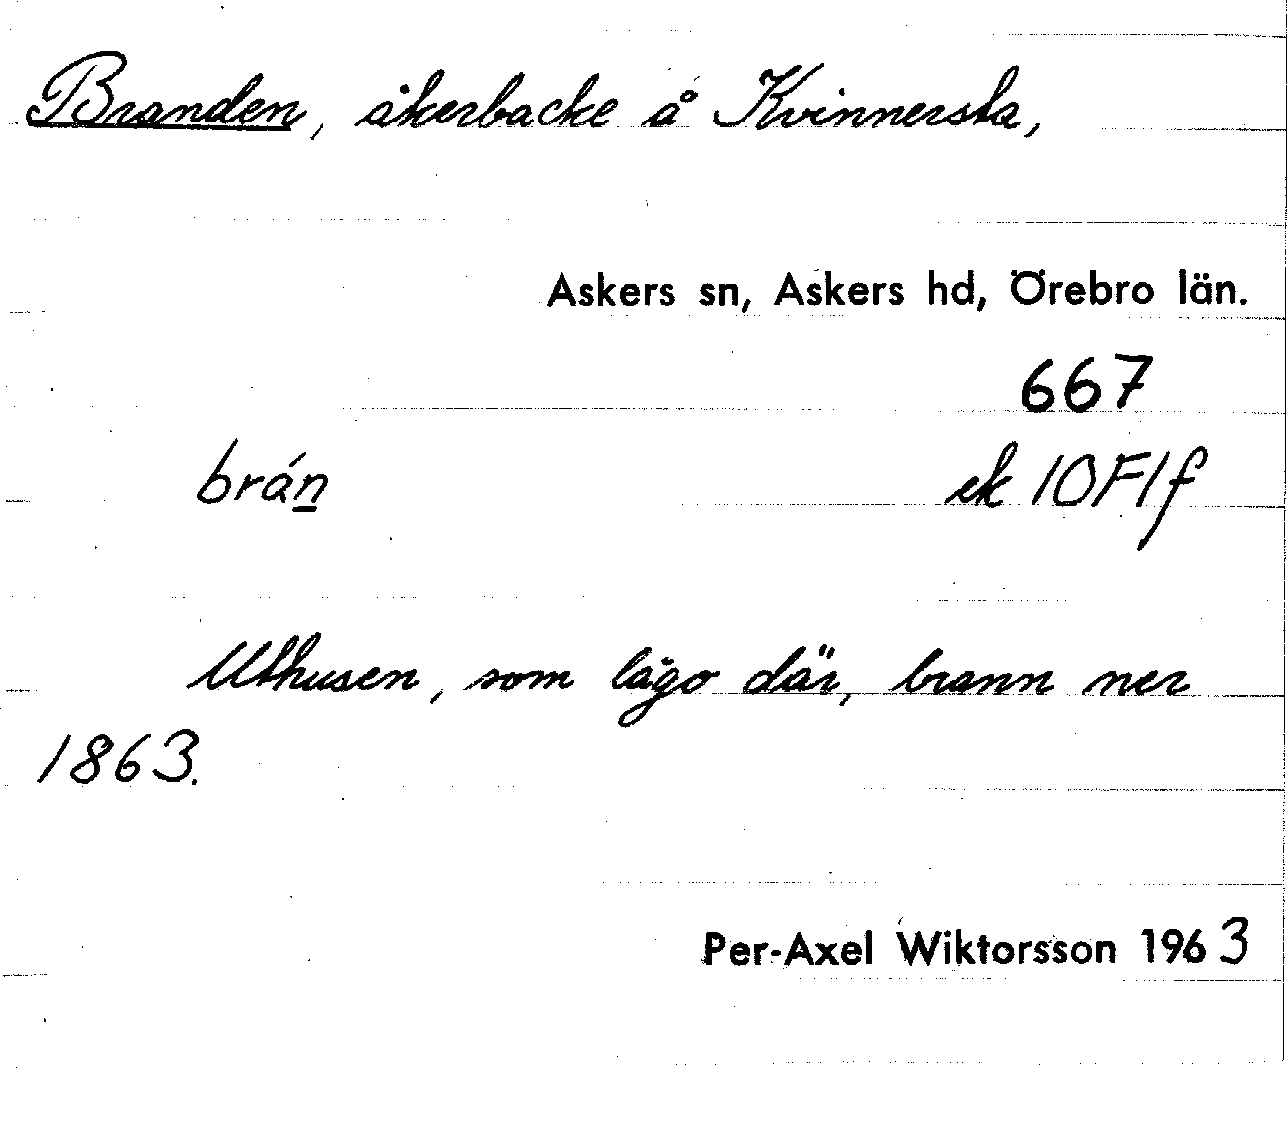 Branden, åkerbacke å Kvinnersta,
Askers sn, Askers hd, Örebro län.
667
brán ek 10F1f
Uthusen, som lågo där, brann ner
1863.
Per-Axel Wiktorsson 1963